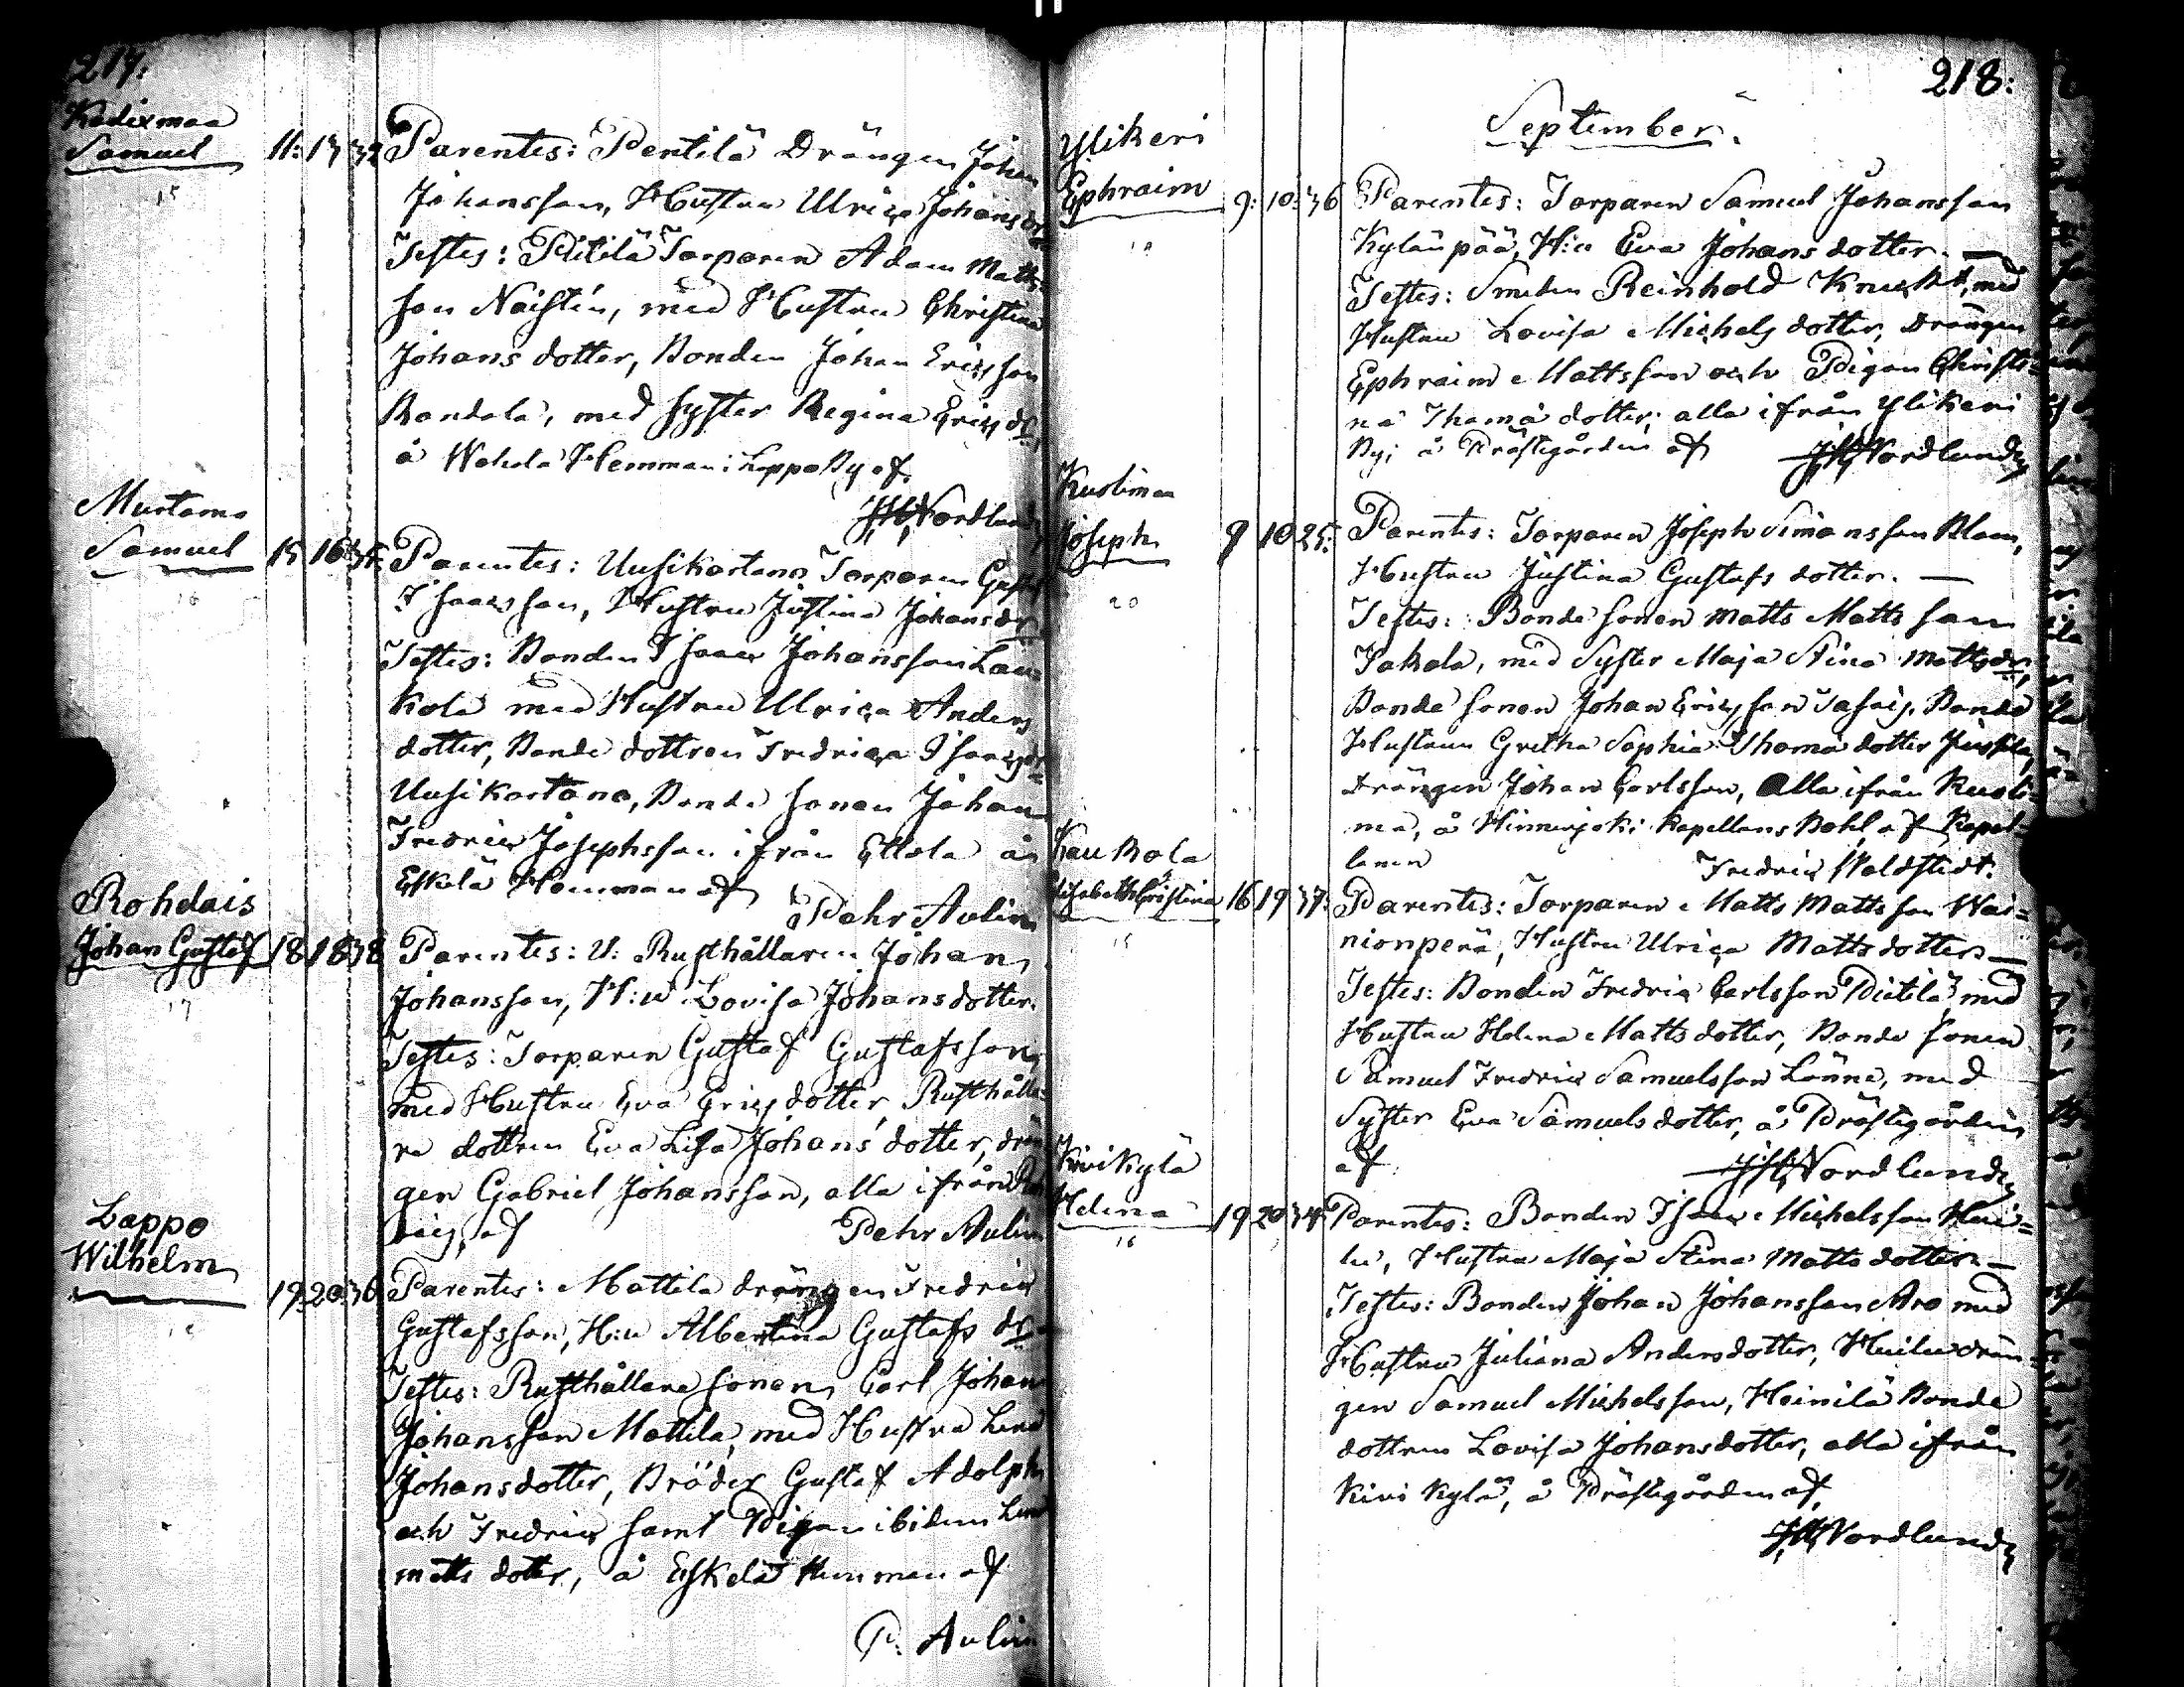 217:
Kadixmaa
Samuel 11: 13 32 Parentes: Pentilä Drängen Johan
15
Johansson, Hustrun Ulrica Johansdr
Testes: Pitilä Torparen Adam Matts
son Naistén, med Hustrun Christina
Johans dotter, Bonden Johan Ericsson
Kandola, med syster Regina Ericsdr,
å Wahala Hemman i Lappo By af.
JHNordlund
Murtamo
Samuel 15 16 35 Parentes: Uusikartano Torparen Gustaf
16
Isaacsson, Hustrun Justina Johansdr
Testes: Bonden Isaac Johansson Lau=
kola med Hustrun Ulrica Anders
dotter, Bonde dottren Fredrica Isaacsdr
Uusikartano, Bonde sonen Johan
Fredric Josephsson ifrån Ellola å
Eskelä Hemman af
Pehr Aulin
Rohdais
Johan Gustaf 18 18 38 Parentes: U: Rusthållaren Johan
17
Johansson, H:u Lovisa Johansdotter.
Testes: Torparen Gustaf Gustafsson,
med Hustrun Eva Ericsdotter, Rusthålla=
re dottren Eva Lisa Johans dotter, drän
gen Gabriel Johansson, alla ifrån Ro
dais, af Pehr Aulin
Lappo
Wilhelm 19: 20: 36 Parentes: Mattila drängen Fredric
18
Gustafsson, H:u Albertina Gustafs dr.
Testes: Rusthållare sonen, Carl Johan
Johansson Mattila, med Hustrun Lena
Johansdotter, Bröder Gustaf Adolph
och Fredric samt Pigan ibidem Lena
matts dotter, å Eskelä Hemman af
P. Aulin
218:
September.
Ylikeri
Ephraim 9: 10: 36 Parentes: Torparen Samuel Johansson
19
Kylänpää, H:u Eva Johans dotter. —
Testes: Smeden Reinhold Knecht, med
Hustrun Lovisa Michels dotter, Drängen
Ephraim Mattsson och Pigan Christi=
na Thomä dotter; alla ifrån Ylikeri
By; å Prästegården af JHNordlund
Kuolimaa
Joseph 9 10 25: Parentes: Torparen Joseph Simonsson Blom,
20
Hustrun Justina Gustafs dotter. —
Testes: Bonde sonen Matts Matts son
Jakola, med Syster Maja Stina Mattsdr,
Bonde sonen Johan Ericsson Bonde
Hustrun Gretha Sophia Thomä dotter Jussila,
Drängen Johan Carlsson, Alla ifrån Kuoli=
ma, å Hinnerjoki Kapellans Bohl af Kapel=
lanen Fredric Waldstedt.
Kaukola
Elisabeth Christina 16 19 37: Parentes: Torparen Matts Mattsson Wai=
15
nionperä, Hustrun Ulrica Mattsdotter —
Testes: Bonden Fredric Carlsson Pietilä, med
Hustrun Helena Matts dotter, Bonde sonen
Samuel Fredric Samuelsson Lönne, med
Syster Eva Samuels dotter, å Prästegården
af JHNordlund
Kivikylä
Helena 19 20 34 Parentes: Bonden Isaac Michelsson Hei=
16
lu, Hustrun Maja Stina Matts dotter. —
Testes: Bonden Johan Johansson Aro med
Hustrun Juliana Andersdotter, Heilu drän=
gen Samuel Michelsson, Heinilä Bonde
dottren Lovisa Johansdotter, alla ifrån
Kivi Kylä, å Prästegården af,
JHNordlund